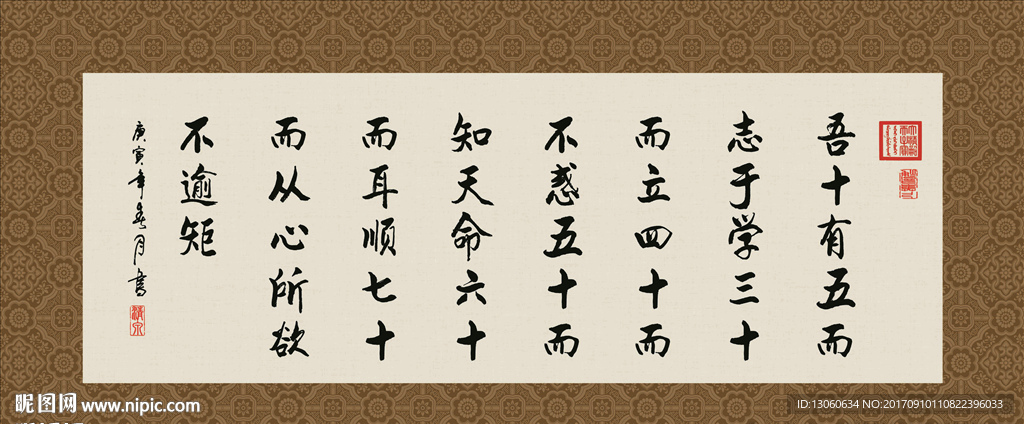 吾十有五而
志于学三十
而立四十而
不惑五十而
知天命六十
而耳顺七十
而从心所欲
不逾矩
庚寅年春月书
昵图网 www.nipic.com
ID:13060634 NO:20170910110822396033